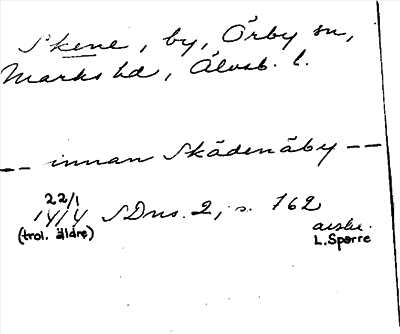 Skene, by, Örby sn,
Marks hd, Älvsb. l.
-- innan Skädenäby --
22/1
1414 SDns. 2, s. 162
(trol. äldre) avskr.
L. Sparre